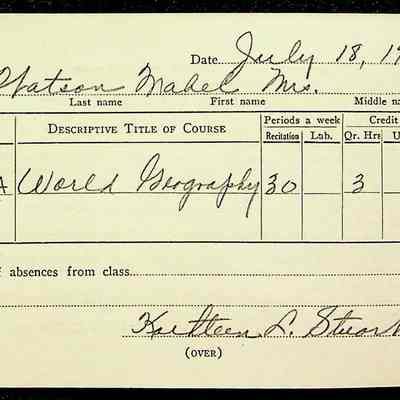 Date July 18, 19
Watson Mabel Mrs.
Last name First name Middle na
Periods a week Credit
DESCRIPTIVE TITLE OF COURSE Recitation Lab. Qr. Hrs U
A World Geography 30 3
f absences from class
Kathleen L. Stuart
(OVER)